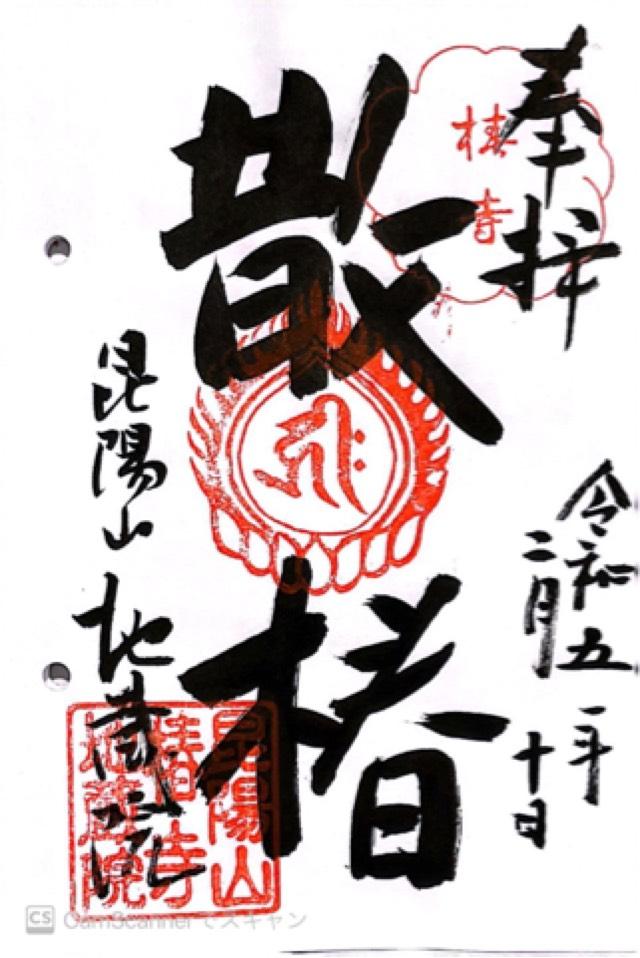 奉拝
椿寺
令和五年
二月十日
散椿
昆陽山地蔵院
昆陽山
椿寺
地蔵院
CS CamScannerでスキャン